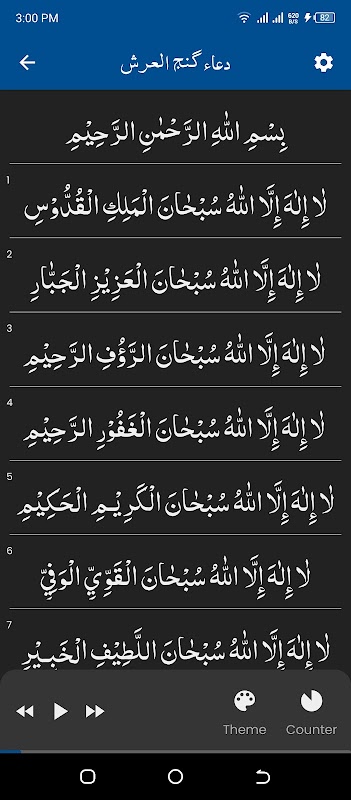 3:00 PM 620 B/S 82
دعاء گنج العرش
بِسْمِ اللهِ الرَّحْمٰنِ الرَّحِيْمِ
1
لَا إِلٰهَ إِلَّا اللهُ سُبْحَانَ الْمَلِكِ الْقُدُّوْسِ
2
لَا إِلٰهَ إِلَّا اللهُ سُبْحَانَ الْعَزِيْزِ الْجَبَّارِ
3
لَا إِلٰهَ إِلَّا اللهُ سُبْحَانَ الرَّؤُفِ الرَّحِيْمِ
4
لَا إِلٰهَ إِلَّا اللهُ سُبْحَانَ الْغَفُوْرِ الرَّحِيْمِ
5
لَا إِلٰهَ إِلَّا اللهُ سُبْحَانَ الْكَرِيْمِ الْحَكِيْمِ
6
لَا إِلٰهَ إِلَّا اللهُ سُبْحَانَ الْقَوِّيِّ الْوَفِيِّ
7
لَا إِلٰهَ إِلَّا اللهُ سُبْحَانَ اللَّطِيْفِ الْخَبِيْرِ
Theme Counter